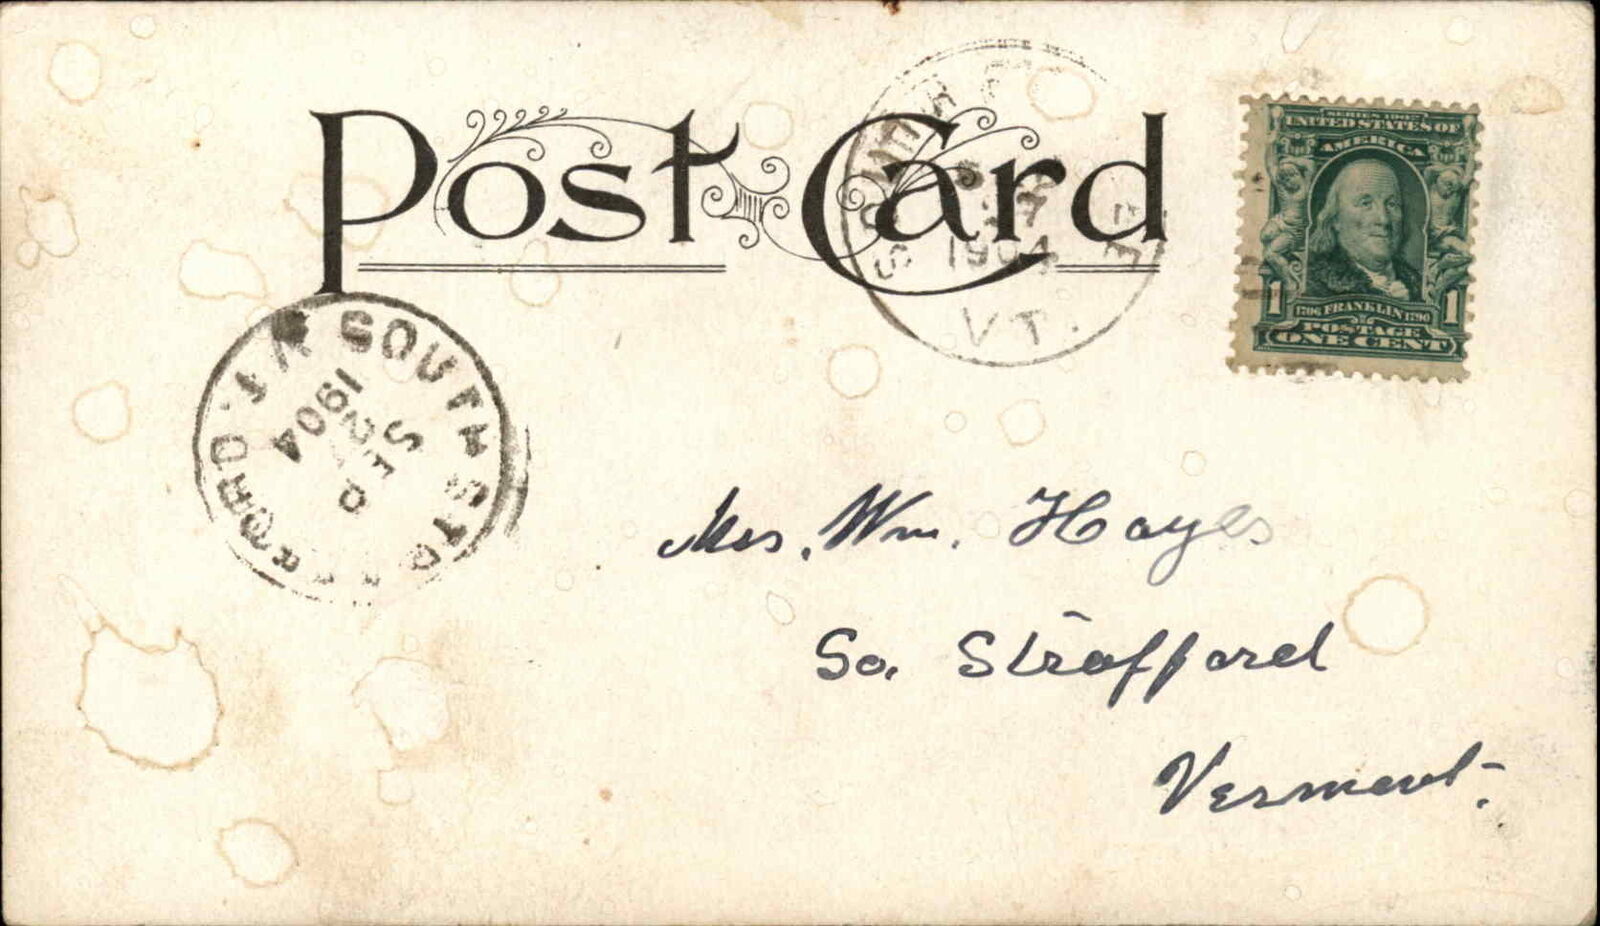 Post Card
SERIES 1902
UNITED STATES OF
AMERICA
1 1706 FRANKLIN 1790 1
POSTAGE
ONE CENT
1904
VT.
SOUTH STRAFFORD, VT.
SEP
1904
Mrs. Wm. Hayes
So. Strafford
Vermont.